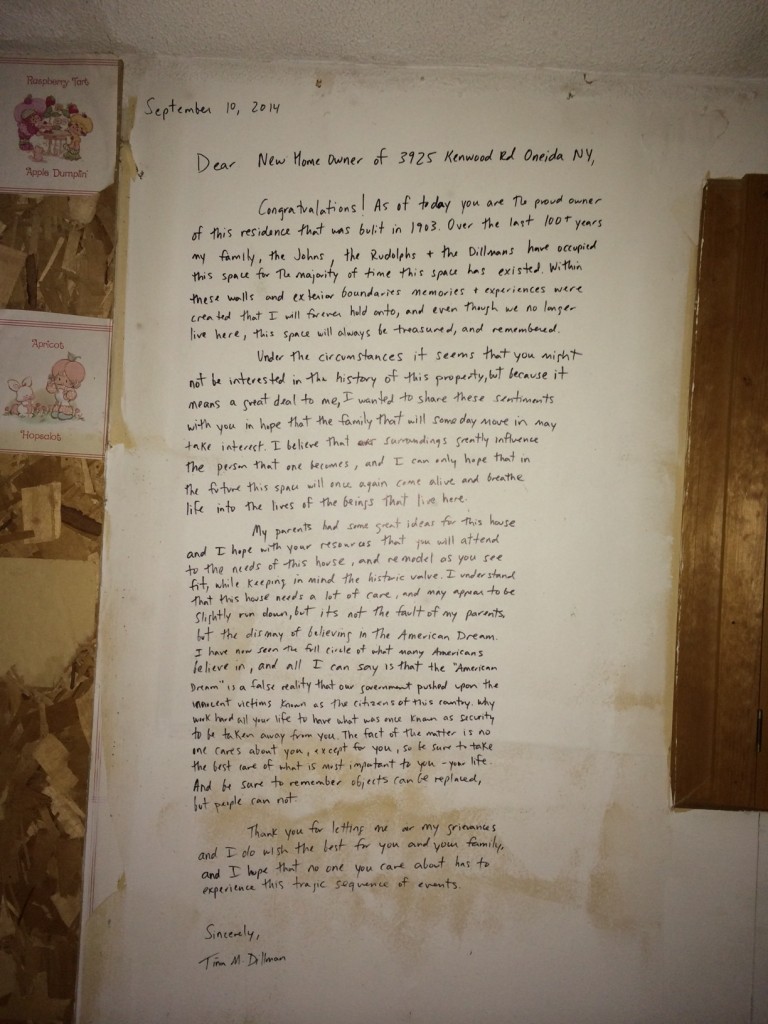 Raspberry Tart
Apple Dumplin'
Apricot
Hopsalot
September 10, 2014
Dear New Home Owner of 3925 Kenwood Rd Oneida NY,
Congratualations! As of today you are the proud owner
of this residence that was bulit in 1903. Over the last 100+ years
my family, the Johns, the Rudolphs + the Dillmans have occupied
this space for the majority of time this space has existed. Within
these walls and exterior boundaries memories + experiences were
created that I will forever hold onto, and even though we no longer
live here, this space will always be treasured, and remembered.
Under the circumstances it seems that you might
not be interested in the history of this property, but because it
means a great deal to me, I wanted to share these sentiments
with you in hope that the family that will someday move in may
take interest. I believe that our surroundings greatly influence
the person that one becomes, and I can only hope that in
the future this space will once again come alive and breathe
life into the lives of the beings that live here.
My parents had some great ideas for this house
and I hope with your resources that you will attend
to the needs of this house, and remodel as you see
fit, while keeping in mind the historic value. I understand
that this house needs a lot of care, and may appear to be
slightly run down, but its not the fault of my parents,
but the dismay of believing in the American Dream.
I have now seen the full circle of what many Americans
believe in, and all I can say is that the "American
Dream" is a false reality that our government pushed upon the
innocent victims known as the citizens of this country. Why
work hard all your life to have what was once known as security
to be taken away from you. The fact of the matter is no
one cares about you, except for you, so be sure to take
the best care of what is most important to you - your life.
And be sure to remember objects can be replaced,
but people can not.
Thank you for letting me air my grievances
and I do wish the best for you and your family,
and I hope that no one you care about has to
experience this tragic sequence of events.
Sincerely,
Tina M Dillman